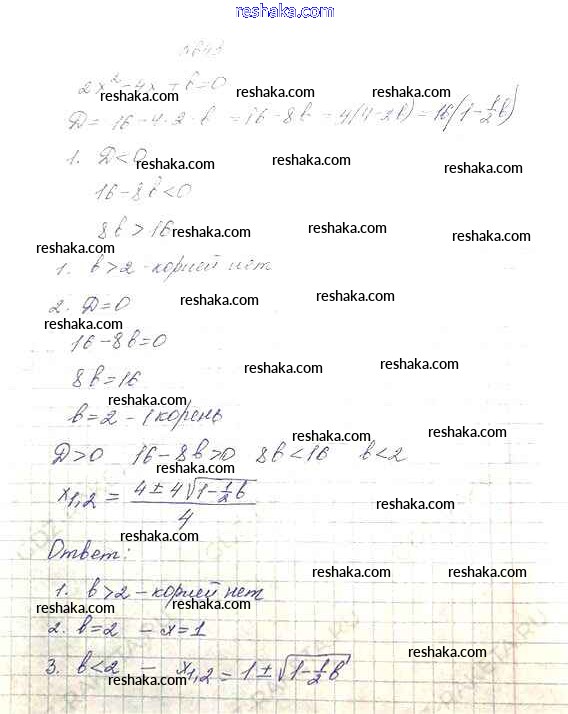 reshaka.com
reshaka.com reshaka.com reshaka.com
2x² - 4x + b = 0
D = 16 - 4·2·b = 16 - 8b = 4(4-2b) = 16(1-½b)
reshaka.com reshaka.com reshaka.com
1. D<0
reshaka.com reshaka.com reshaka.com
16-8b<0
8b>16
reshaka.com reshaka.com reshaka.com
reshaka.com
1. b>2 - корней нет
2. D=0
reshaka.com reshaka.com
reshaka.com
16-8b=0
reshaka.com reshaka.com
8b=16
reshaka.com
b=2 - 1 корень
reshaka.com reshaka.com
D>0 16-8b>0 8b<16 b<2
reshaka.com
x₁,₂ = (4±4√(1-½b))/4
reshaka.com
Ответ:
reshaka.com reshaka.com
1. b>2 - корней нет
reshaka.com reshaka.com
2. b=2 - x=1
reshaka.com
3. b<2 - x₁,₂ = 1±√(1-½b)
reshaka.com